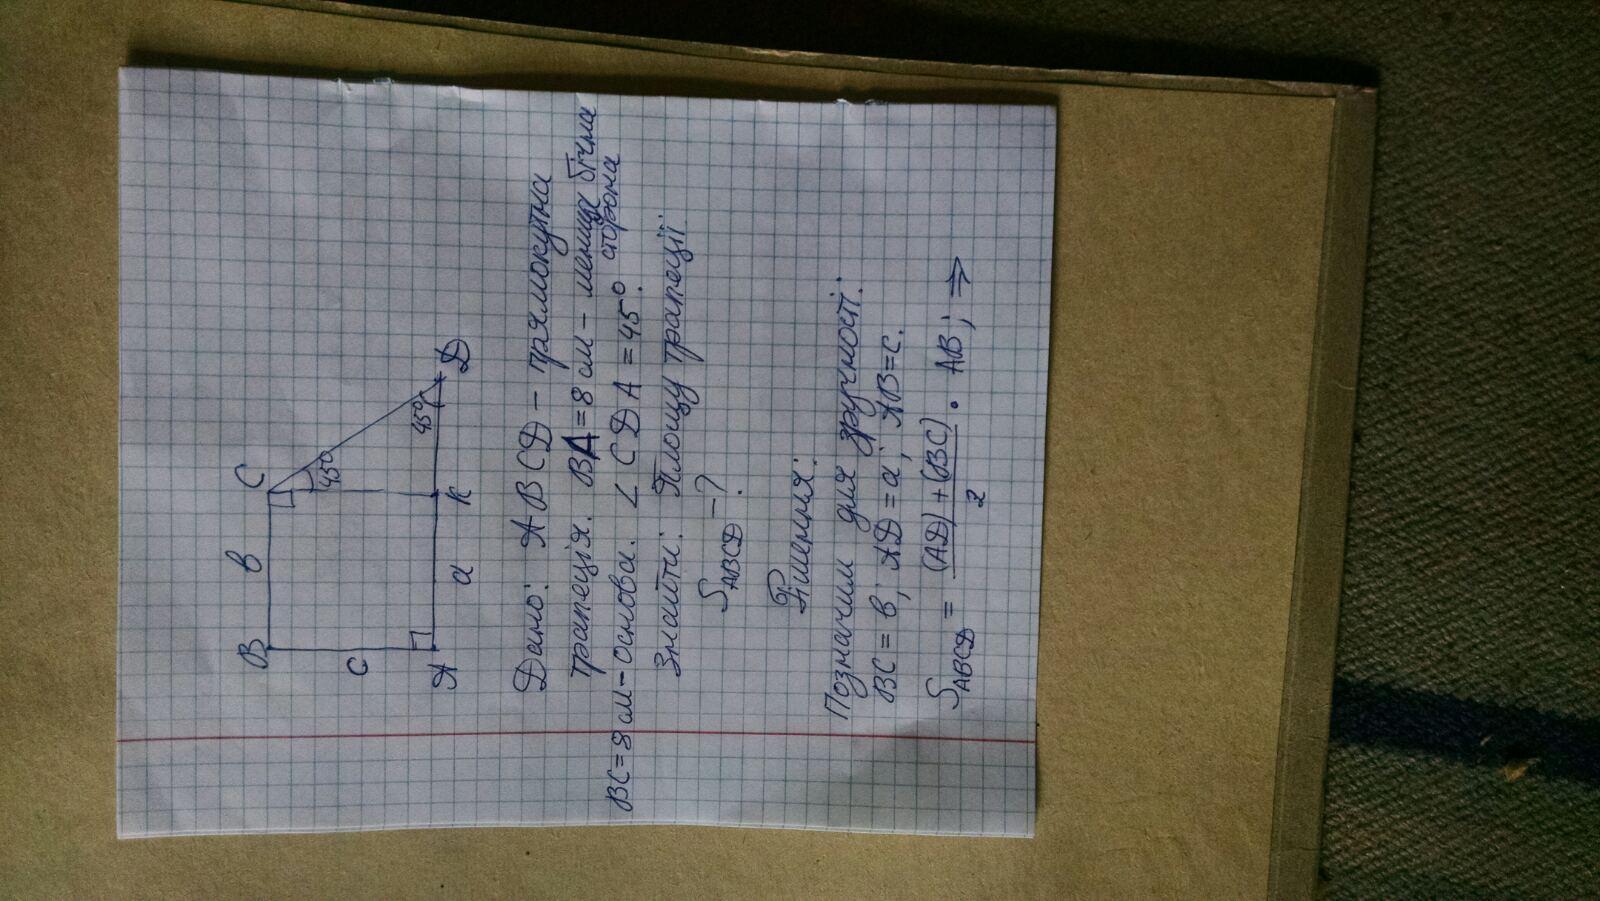 B в C
45°
c
45°
A a K D
Дано: ABCD – прямокутна
трапеція. BA = 8 см – менша бічна
сторона
BC = 8 см – основа. ∠ CDA = 45°.
Знайти: Площу трапеції.
S ABCD – ?
Рішення:
Позначим для зручності:
BC = в; AD = a; AB = c.
S ABCD = (AD) + (BC) / 2 · AB; ⇒